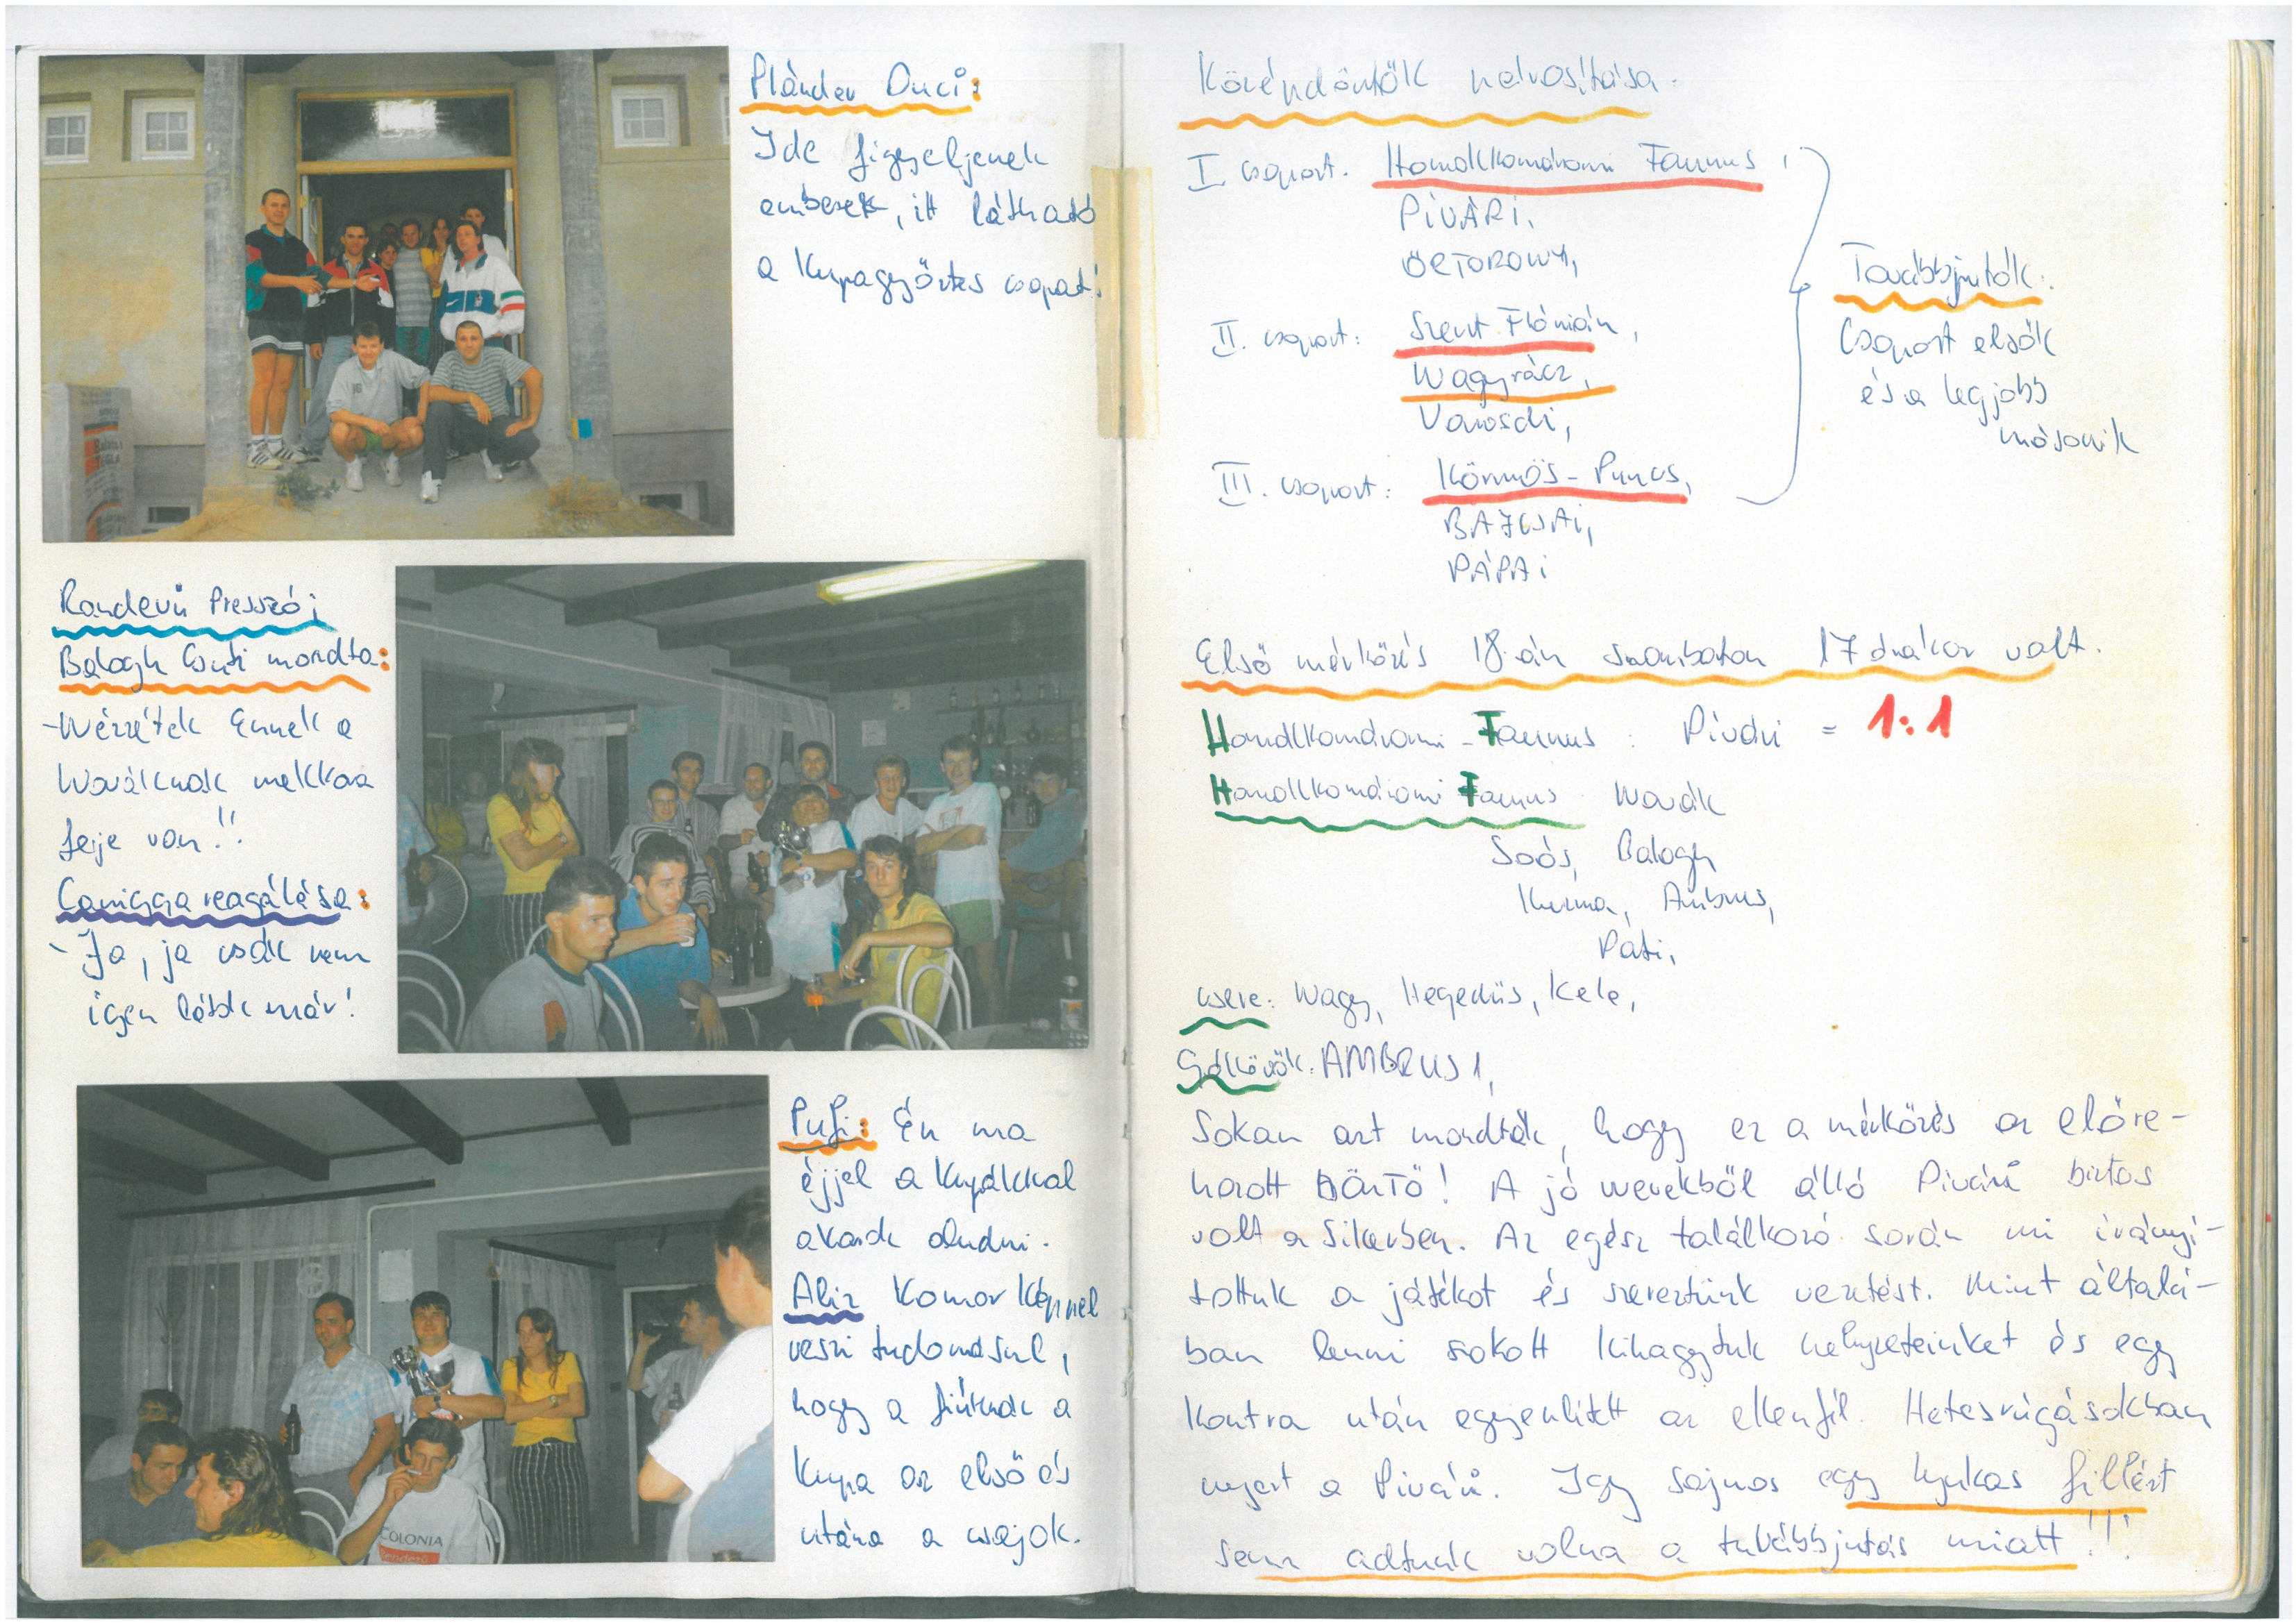 Plánder Öcsi:
Ide figyeljenek
emberek, itt látható
a Kupagyőztes csapat!
Randevú Presszó;
Balogh Csuti mondta:
- Nézzétek Ennek a
Nováknak mekkora
feje van!!
Caniggia reagálása:
- Ja, ja csak nem
igen látok már!
Pufi: Én ma
éjjel a Kupákkal
akarok aludni.
Aliz Komor Képpel
veszi tudomásul,
hogy a fiúknak a
Kupa az első és
utána a csajok.
COLONIA
Középdöntők párosítása:
I. csoport. Homokkomáromi Faunus,
PÍVÁRI,
ÖRTORONY,
II. csoport: Szent Flórián,
Nagyrácz,
Varosdi,
III. csoport: Körmös-Puncs,
BAJCSAI,
PÁPAI
Továbbjutók:
Csoport elsők
és a legjobb
második
Első mérkőzés 18-án szombaton 17 órakor volt.
Homokkomáromi - Faunus : Pívári = 1:1
Homokkomáromi Faunus Novák
Soós, Balogh
Kuzma, Ambrus,
Páti,
csere: Nagy, Hegedüs, Kele,
Góllövők: AMBRUS 1,
Sokan azt mondták, hogy ez a mérkőzés az előre-
hozott DÖNTŐ! A jó nevekből álló Pívári biztos
volt a sikerben. Az egész találkozó során mi irányí-
tottuk a játékot és szereztünk vezetést. Mint általá-
ban lenni szokott kihagytuk helyzeteinket és egy
kontra után egyenlített az ellenfél. Hetesrúgásokban
nyert a Pívári. Igy sajnos egy lyukas fillért
sem adtunk volna a továbbjutás miatt!!!